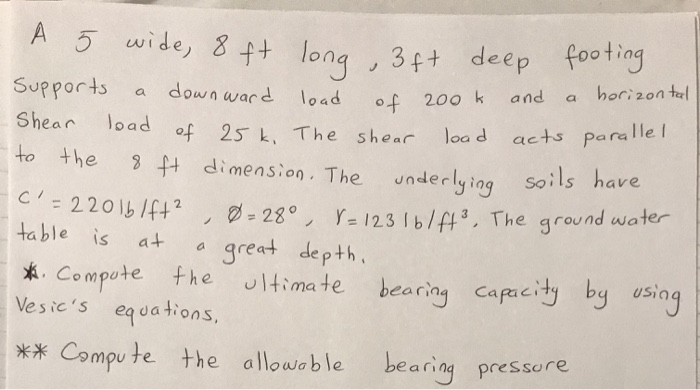 A 5 wide, 8 ft long, 3 ft deep footing
Supports a downward load of 200 k and a horizontal
Shear load of 25 k. The shear load acts parallel
to the 8 ft dimension. The underlying soils have
c' = 220 lb/ft², Ø = 28°, γ = 123 lb/ft³. The ground water
table is at a great depth.
*. Compute the ultimate bearing capacity by using
Vesic's equations.
** Compute the allowable bearing pressure